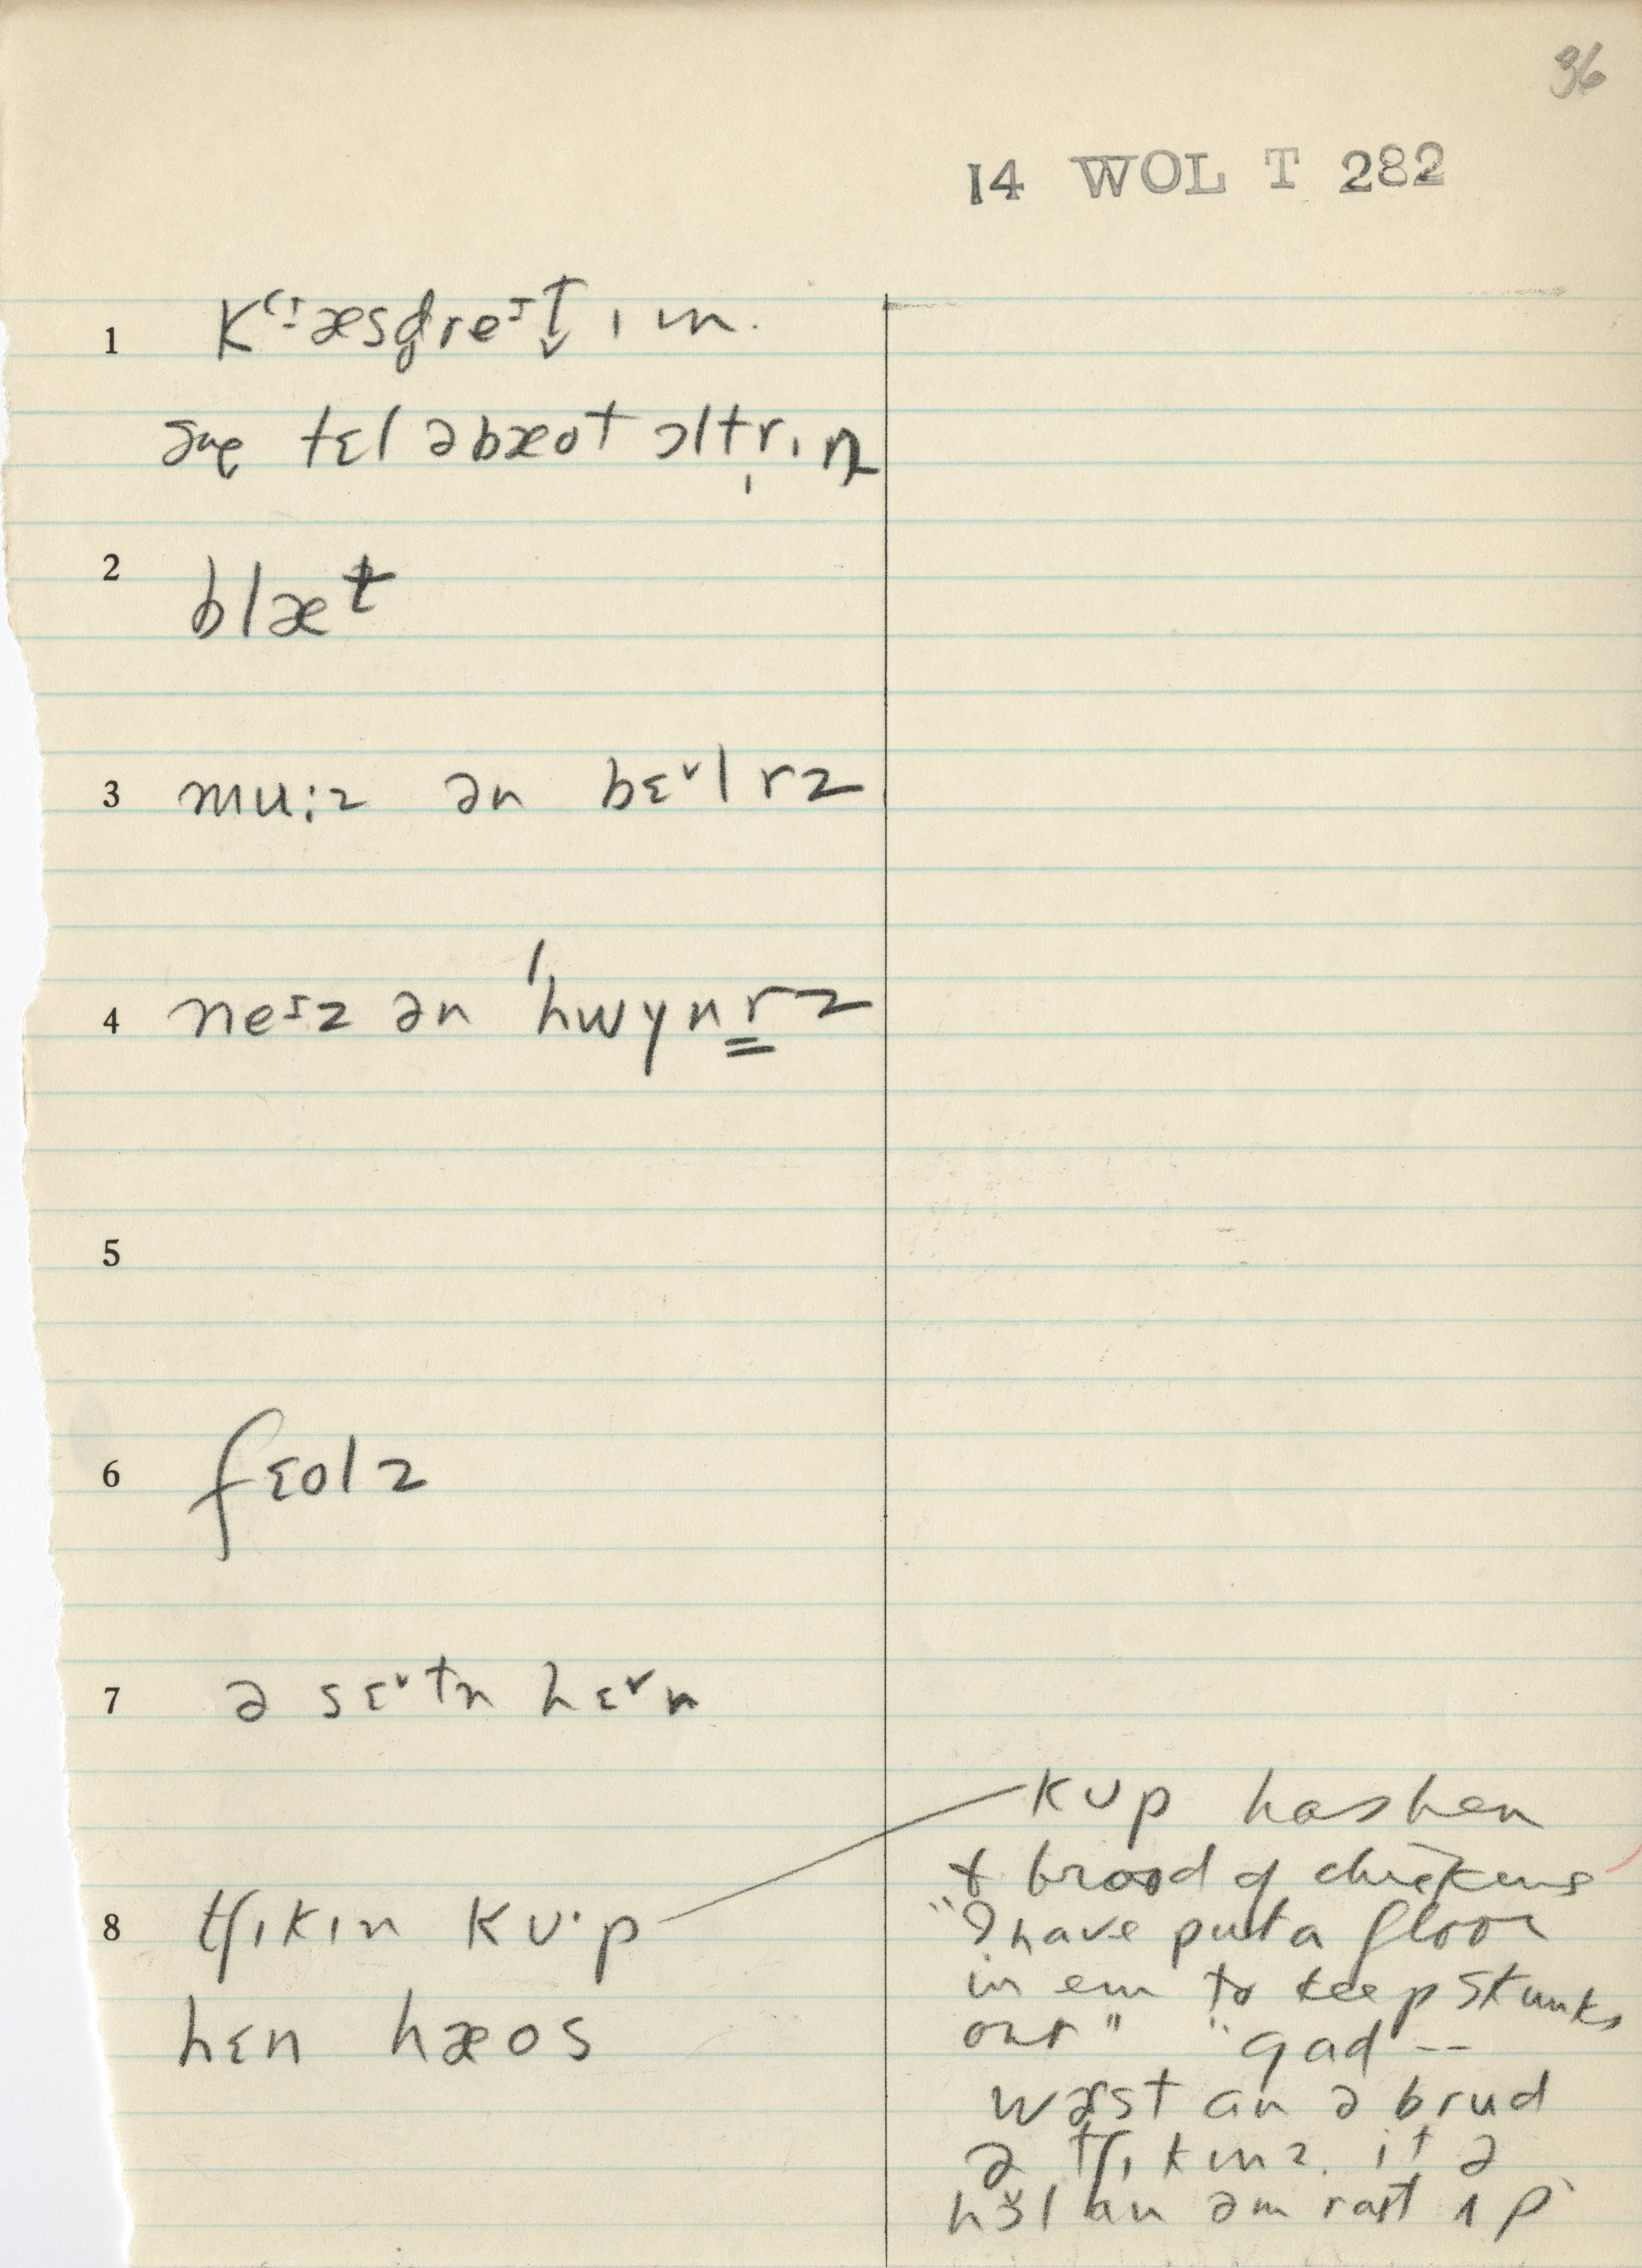 36
14 WOL T 282
1 kʻːæsd̥reɪt̬ ɪ n.
tɛl əbæot ɔltr̩ɪŋ
2 blæt
3 muːz ən bɛˇlrz
4 neɪz ən ˈhwynr̳z
5
6 fɛolz
7 ə sɛˇtn hɛˇn
8 tʃɪkɪn kuˑp
hɛn hæos
kup has hen
& brood of chickens
"I have put a floor
in em to keep skunks
out" "gad --
wəst an ə brud
ə tʃɪkɪnz. it ə
an əm raɪt ʌp